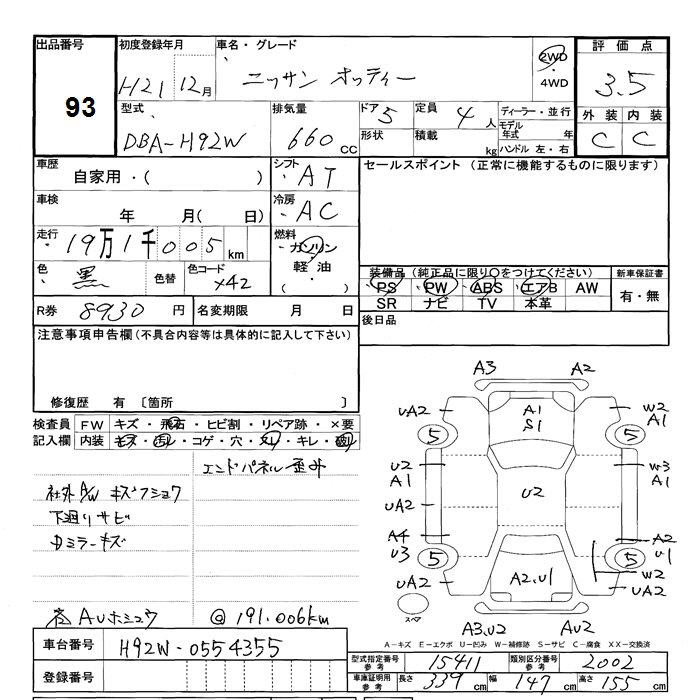 出品番号 初度登録年月 車名・グレード 評価点
93 H21 12月 ニッサン オッティー 2WD・4WD 3.5
外装 内装
C C
型式 排気量 ドア 定員 ディーラー・並行
DBA-H92W 660cc 5 4人 モデル年式 年
形状 積載 kg ハンドル 左・右
車歴 シフト セールスポイント (正常に機能するものに限ります)
自家用・( ) ・AT
車検 冷房
年 月( 日) ・AC
走行 燃料
19万1千005km ・ガソリン
軽油
・( )
色 色替 色コード 装備品 (純正品に限り○をつけてください) 新車保証書
・黒 X42 PS PW ABS エアB AW 有・無
SR ナビ TV 本革
R券 8930円 名変期限 月 日 後日品
注意事項申告欄(不具合内容等は具体的に記入して下さい)
修復歴 有 〔箇所 〕
検査員記入欄 FW キズ・飛石・ヒビ割・リペア跡・×要
内装 キズ・汚レ・コゲ・穴・スレ・キレ・
エンドパネル歪み
社外A/W キズフショク
下廻りサビ
ミラーキズ
AVホシュウ @191.006km
A3 A2
UA2 A1 W2
S1 A1
5 5
U2 U2 W3
A1 A1
UA2
A4 A2
U3 U1
5 5
W2
UA2 A2.U1 UA2
スペア
A3.U2 AU2
A-キズ E-エクボ U-凹み W-補修跡 S-サビ C-腐食 XX-交換済
車台番号 H92W-0554355
型式指定番号 参考 15411 類別区分番号 参考 2002
登録番号
車庫証明用 参考 長さ 339cm 幅 147cm 高さ 155cm